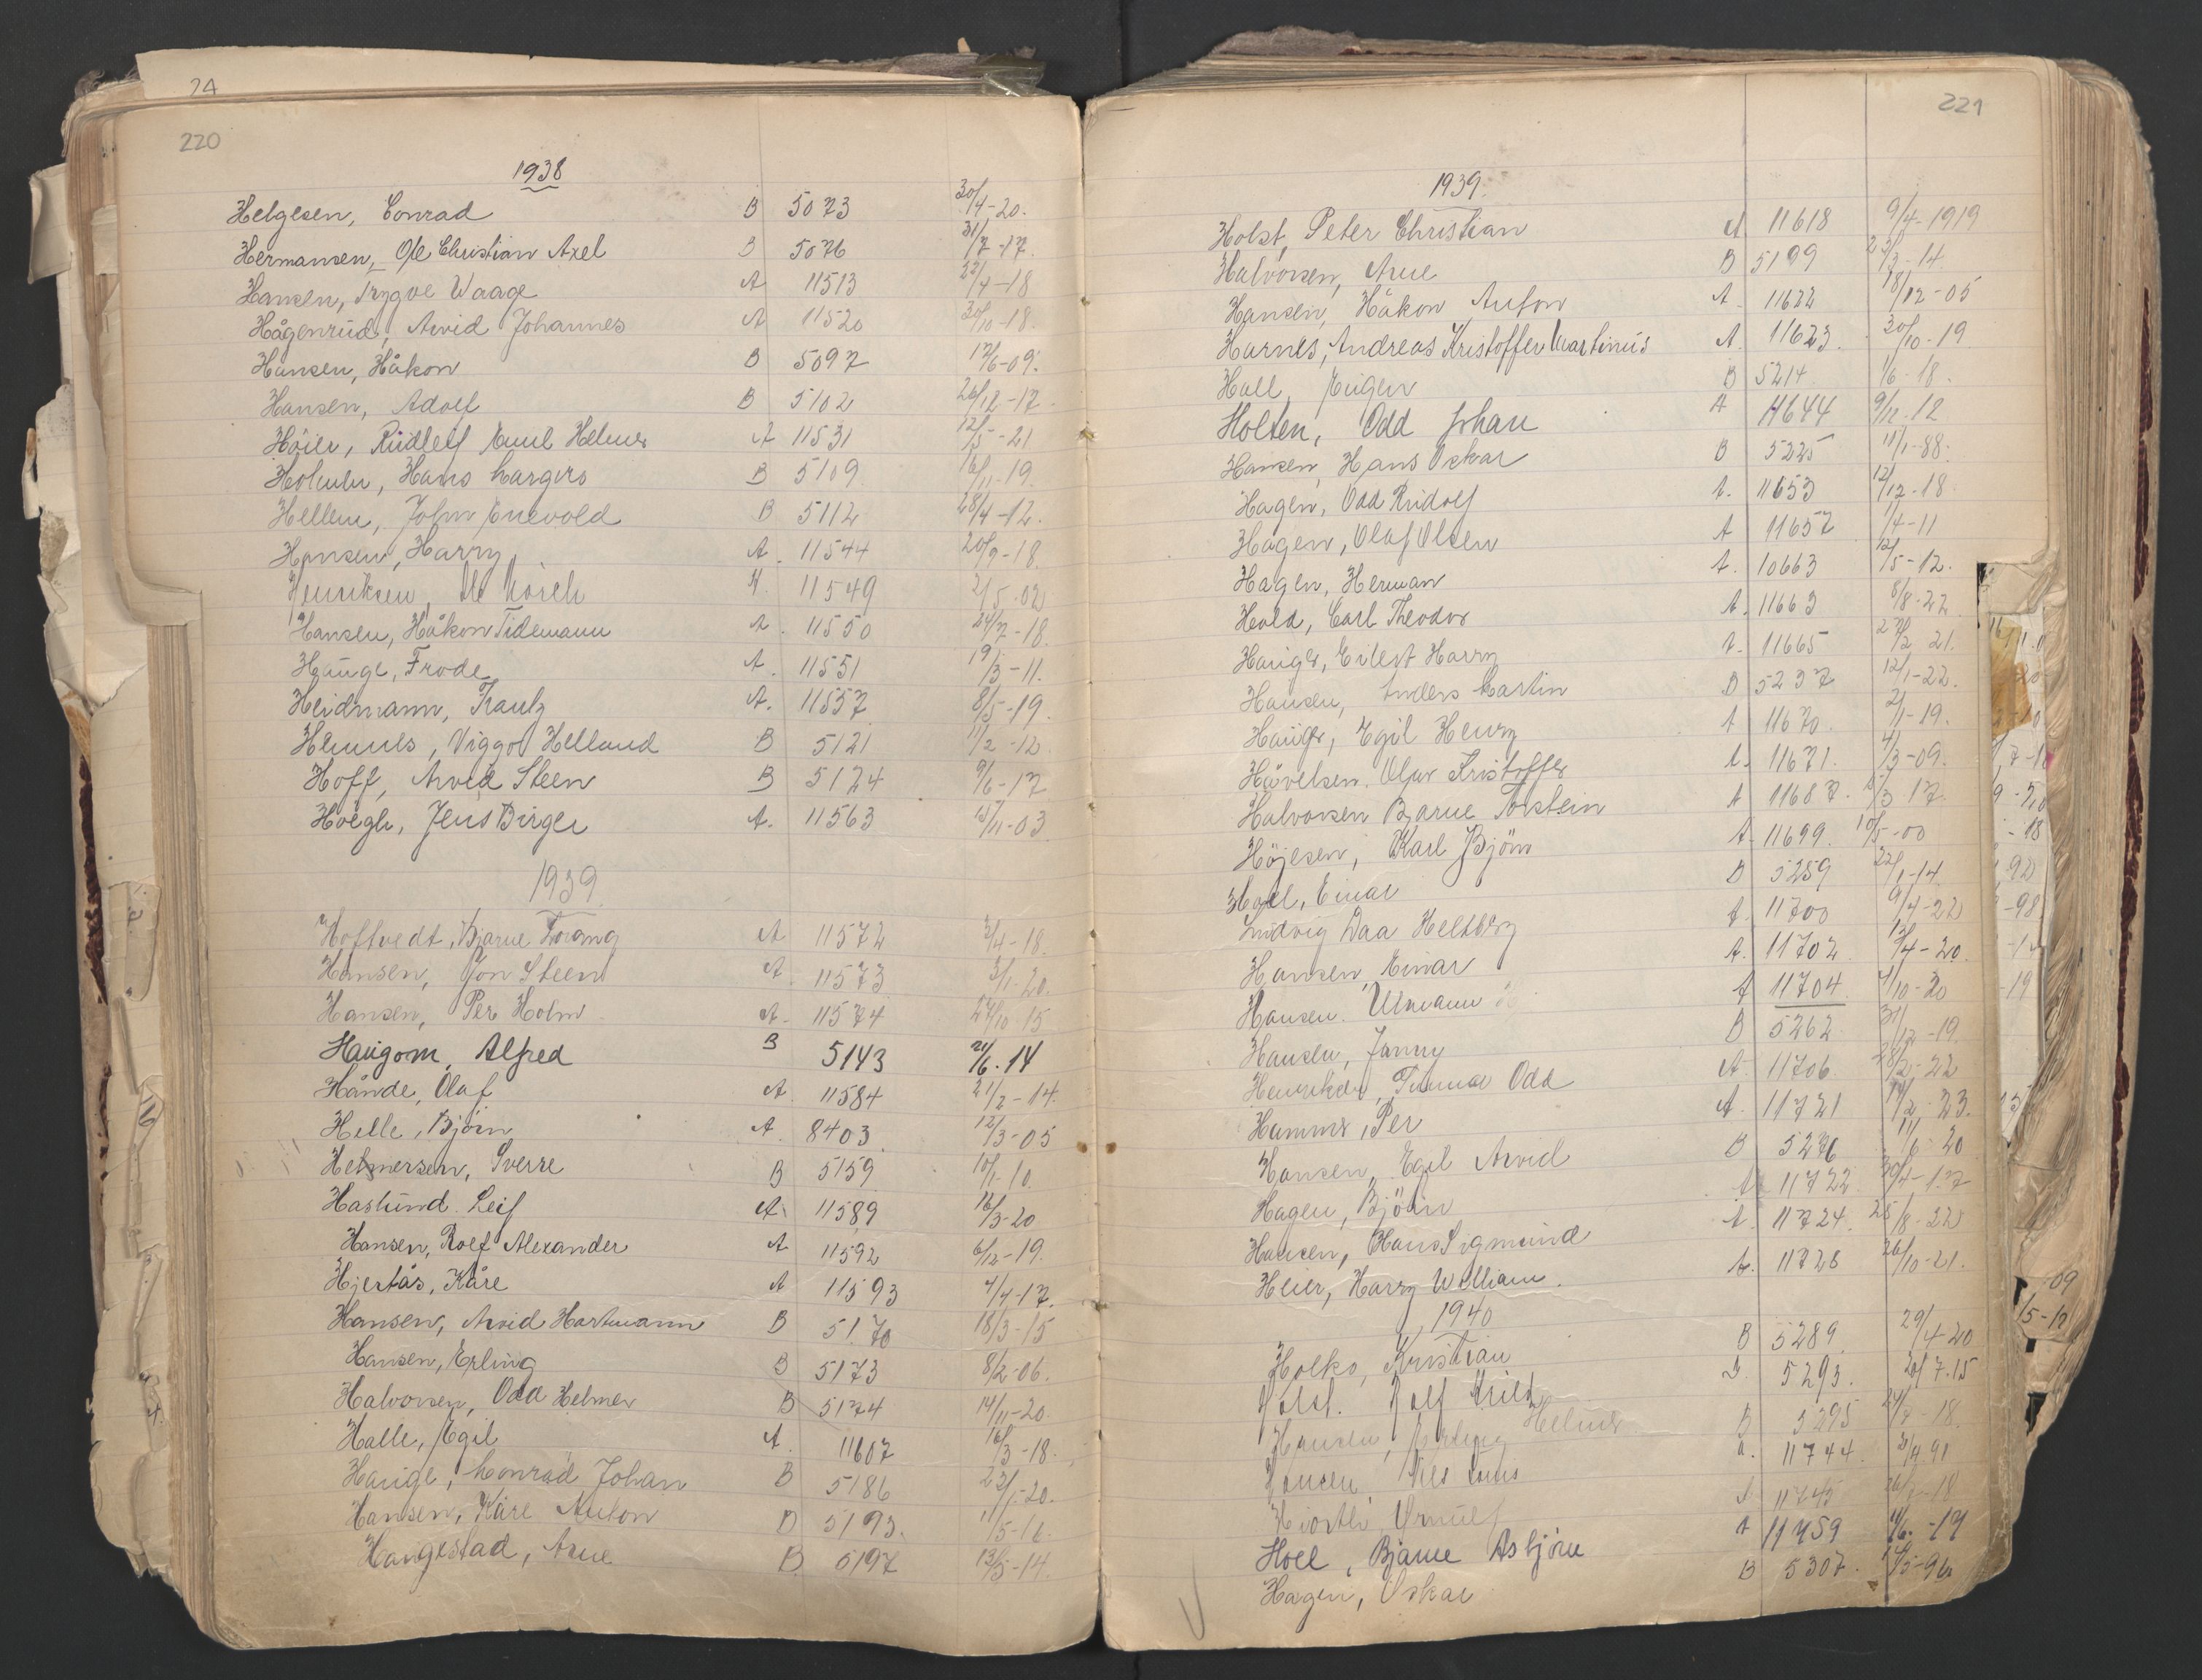 24
220
1938
Helgesen, Conrad B 5073 30/4-20.
Hermansen, Ole Christian Axel B 5076 31/7-17.
Hansen, Trygve Waage A 11513 22/4-18
Hågenrud, Arvid Johannes A 11520 30/10-18.
Hansen, Håkon B 5097 12/6-09.
Hansen, Adolf B 5102 26/12-17.
Höier, Rudleif Emil Helmer A 11531 12/5-21
Hans B 5109 16/11-19.
John Enevold B 5112 28/4-12.
Hansen, Harry A. 11544 20/9-18.
Henriksen, 11549 2/5-02
Hansen, Håkon Tidemann A. 11550 24/7-18.
Hauge, Frode A. 11551 19/3-11.
Heidmann, Frantz A. 11557 8/5-19.
Viggo Helland B 5121 11/2-12.
Hoff, Arvid Steen B 5124 9/6-17
Höegh, Jens Birger A. 11563 15/11-03
1939.
Hoftvedt, Bjarne A 11572 3/4-18.
Hansen, Jon Steen A. 11573 3/1-20.
Hansen, Per Holm A. 11574 24/10-15
Haugom, Alfred B 5143 21/6.14
Hånde, Olaf A. 11584 21/2-14.
Helle, Björn A. 8403 12/3-05
Helmersen, Sverre B 5159 10/1-10.
Haslund. Leif A. 11589 16/3-20
Hansen, Rolf Alexander A 11592 6/12-19.
Hjertås, Kåre A 11593 4/4-17.
Hansen, Arvid Hartmann B 5170 18/3-15
Hansen, Erling B 5173 8/2-06.
Halvorsen, Odd Helmer B 5174 14/11-20.
Halle, Egil A. 11607 16/3-18.
Hauge, Conrad Johan B 5186 23/1-20.
Hansen, Kåre Anton B 5193. 11/5-16.
Haugestad, Arne B. 5197 13/5-14.
221
1939.
Holst, Peter Christian A 11618 9/4-1919
Halvorsen, Arne B 5199 23/3-14
Hansen, Håkon Anton A. 11622 18/12-05
Harnes, Andreas Kristoffer Martinius A. 11623. 30/10-19
Hall, Eugen B 5214 1/6-18.
Holten, Odd Johan A 11644 9/12.12
Hansen, Hans Oskar B 5225 11/1-88.
Hagen, Odd Rudolf A. 11653 12/12-18
Hagen, Olaf Olsen A 11657 1/4-11
Hagen, Herman A. 10663 12/5-12.
Hold, Carl Theodor A. 11663 8/8-22
Hauger, Eilert Harry A. 11665 27/2 21.
Hansen, Anders Martin B 5237 12/1-22.
Hauger, Egil Henry A 11670. 2/1-19.
Hövelsen. Olav Kristoffer A. 11671. 4/3-09.
Halvorsen Bjarne Torstein A 11687. 15/3 17.
Höjesen, Karl Björn A. 11699. 10/5-00
Hoel, Einar B 5259 22/1-14
Ludvig Daa Heltberg A. 11700 9/4-22
Hansen, Einar A. 11702 13/4-20.
Hansen. Ulmann A 11704 4/10-20
Hansen, Jonny B 5262 31/12-19.
Henriksen, Odd A. 11706. 28/2-22
Hammer, Per A. 11721 14/2.23.
Hansen, Egil Arvid B 5276 11/6-20
Hagen, Björn A 11722. 20/4-17
Hansen, Hans Sigmund A. 11724. 25/8-22
Heier, Harry William. A. 11728 26/10-21.
1940
Holko, Kristian B 5289. 29/4-20
Holst. Rolf B 5293. 20/7.15
Hansen, Erling Helmer B 5295 24/7-18.
Hansen Nils A. 11744. 3/4 91
11745
Hoel, Bjarne Asbjörn A 11759 11/6.-19
Hagen, Oskar B 5307.